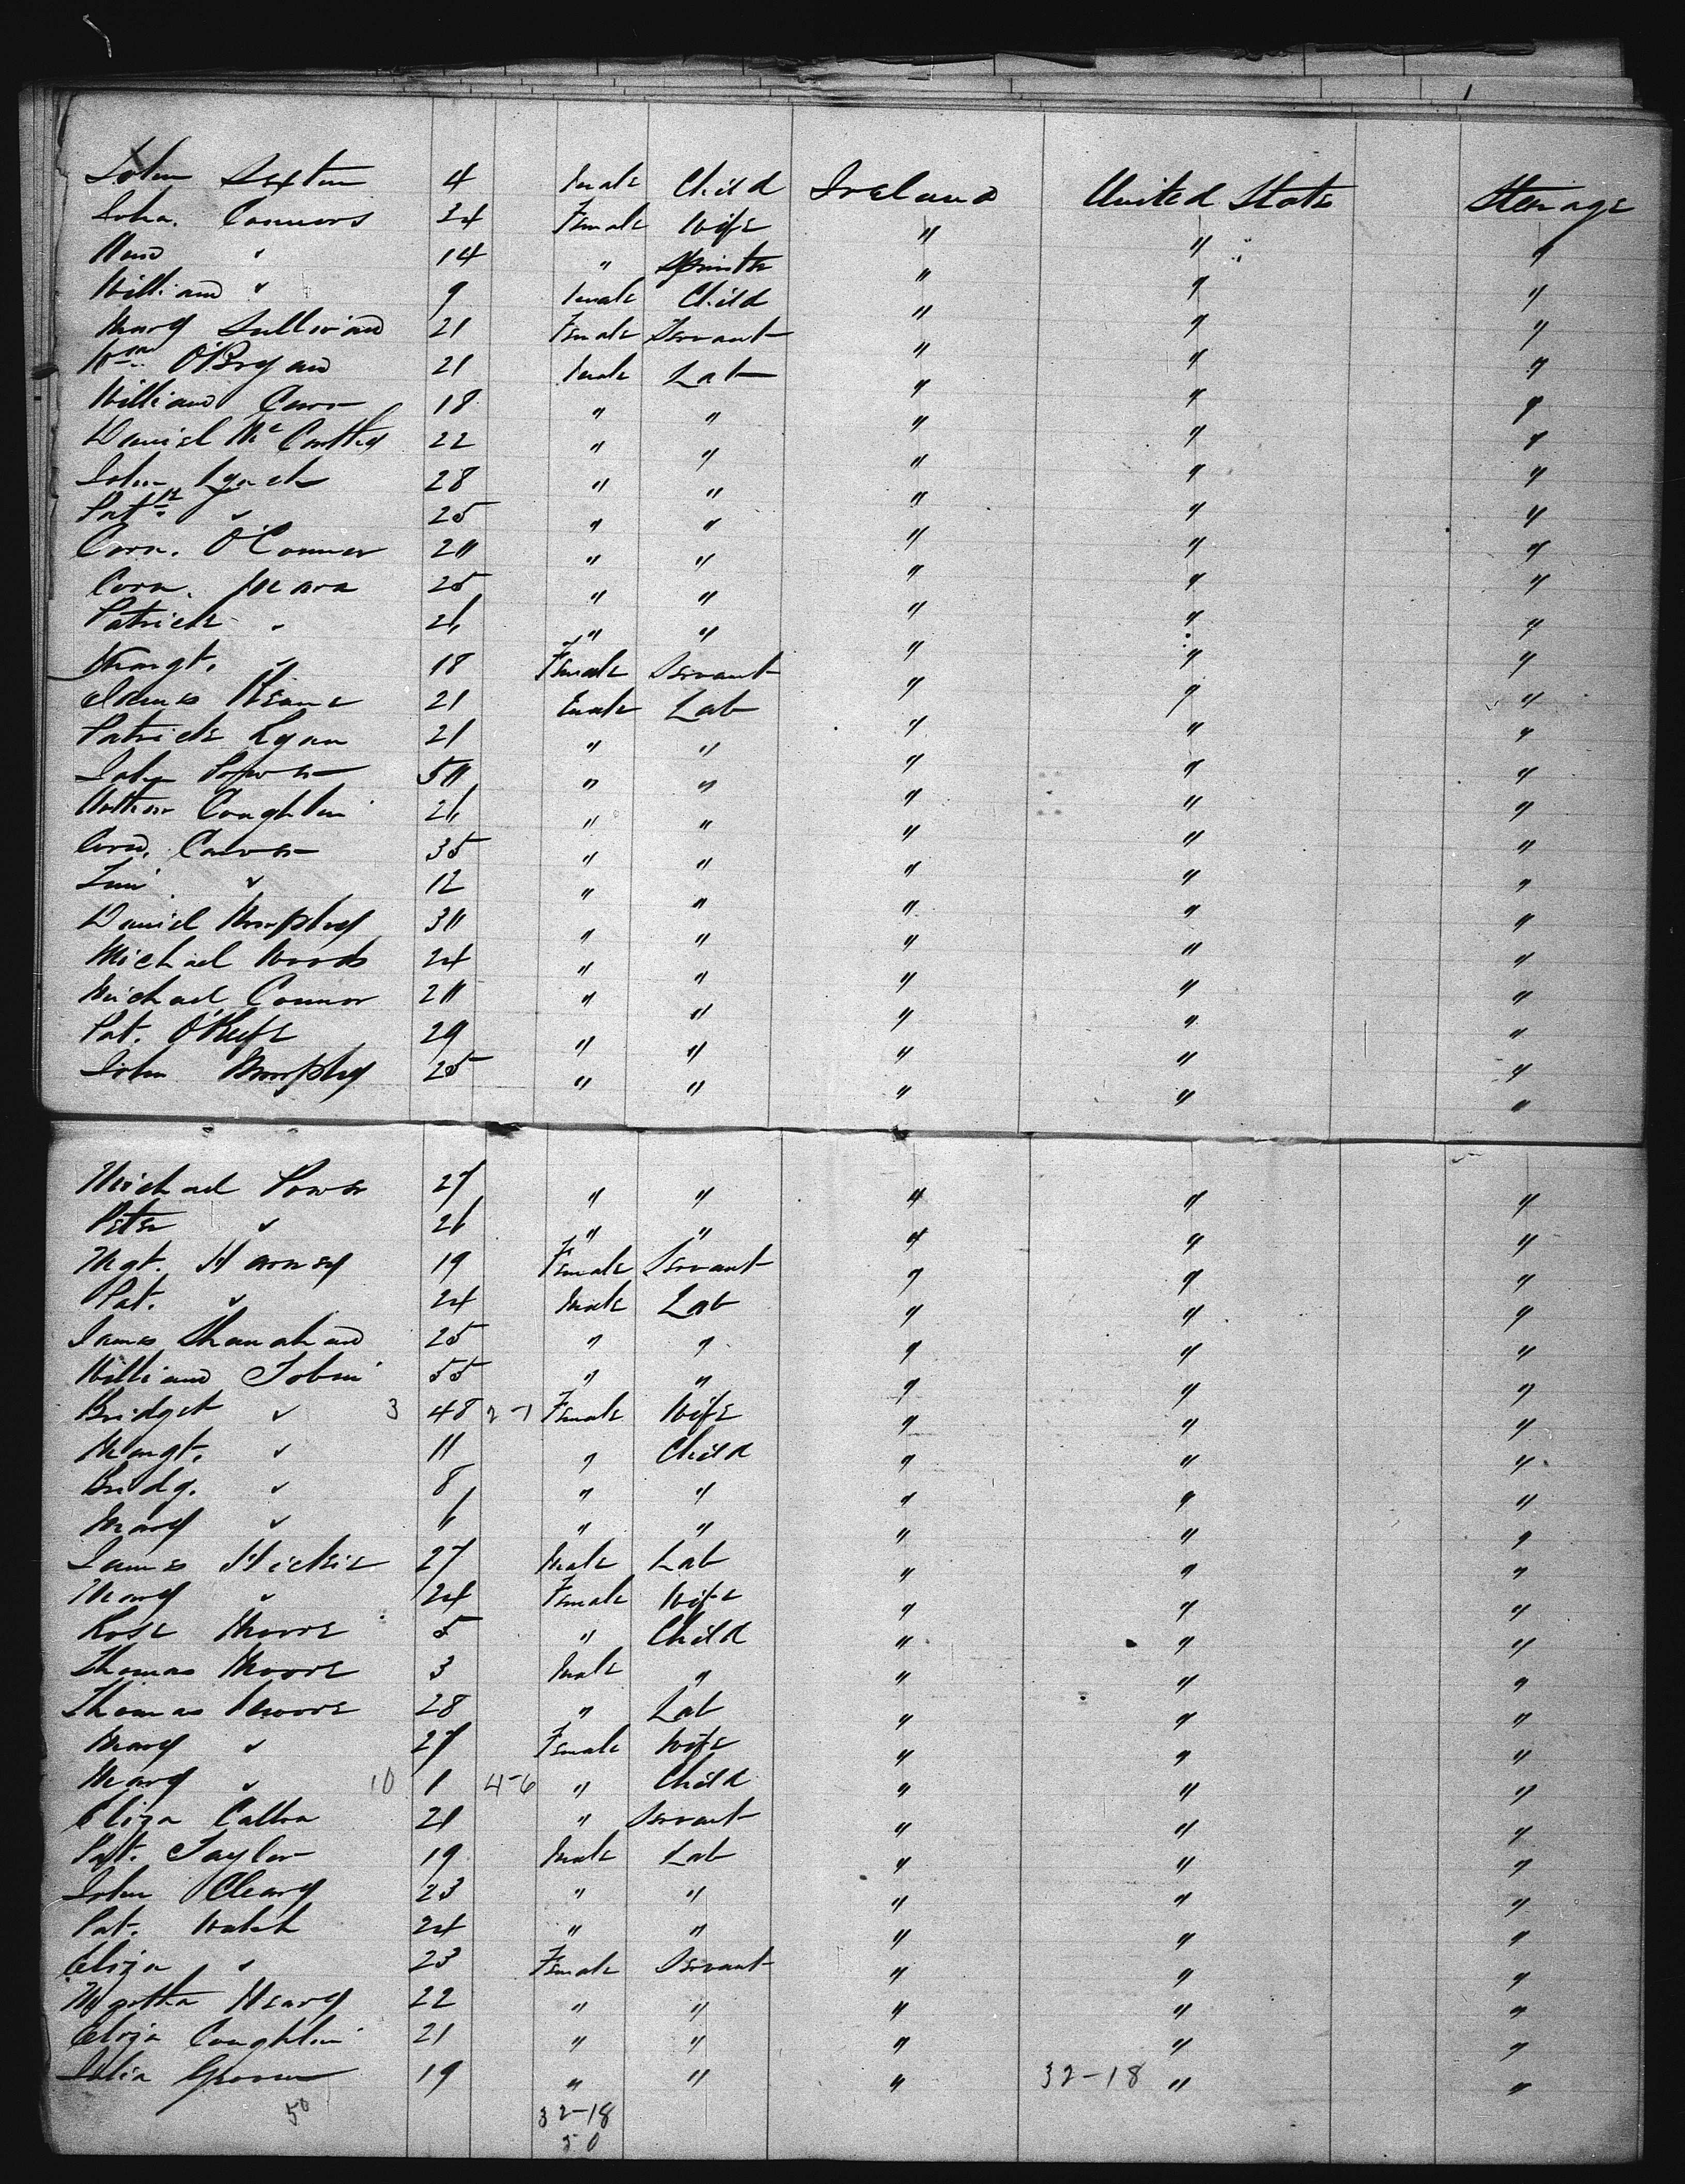 John Sexton 4 Male Child Ireland United States Steerage
Joha. Connors 24 Female Wife " " "
" 14 " Spinster " " "
William " 9 Male Child " " "
Mary Sullivan 21 Female Servant " " "
Wm O'Bryan 21 Male Lab " " "
William Carr 18 " " " " "
Daniel McCarthy 22 " " " " "
John Lynch 28 " " " " "
Patk " 25 " " " " "
Corn. O'Connor 20 " " " " "
Corn. Meara 25 " " " " "
Patrick " 26 " " " " "
Margt. " 18 Female Servant " " "
James Keane 21 Male Lab " " "
Patrick Ryan 21 " " " " "
John Power 50 " " " " "
Coughlin 26 " " " " "
Corn. 35 " " " " "
" 12 " " " " "
Daniel Murphy 30 " " " " "
Michael Woods 24 " " " " "
Michael Connor 20 " " " " "
Pat. O'Keefe 29 " " " " "
John Murphy 25 " " " " "
Michael Power 27 " " " " "
Peter " 26 " " " " "
Mgt. Harney 19 Female Servant " " "
Pat. " 24 Male Lab " " "
James Shanahan 25 " " " " "
William Tobin 55 " " " " "
Bridget " 3 48 2-1 Female Wife " " "
Margt. " 11 " Child " " "
Bridg. " 8 " " " " "
Mary " 6 " " " " "
James Hickie 27 Male Lab " " "
Mary " 24 Female Wife " " "
Rose Moore 5 " Child " " "
Thomas Moore 3 Male " " " "
Thomas Moore 28 " Lab " " "
Mary " 27 Female Wife " " "
Mary " 10 1 4-6 " Child " " "
Eliza 21 " Servant " " "
Pat. Taylor 19 Male Lab " " "
John Cleary 23 " " " " "
Pat. Walsh 24 " " " " "
Eliza " 23 Female Servant " " "
22 " " " " "
Eliza Coughlin 21 " " " " "
Julia 19 " " " 32-18 " "
50 32-18
50